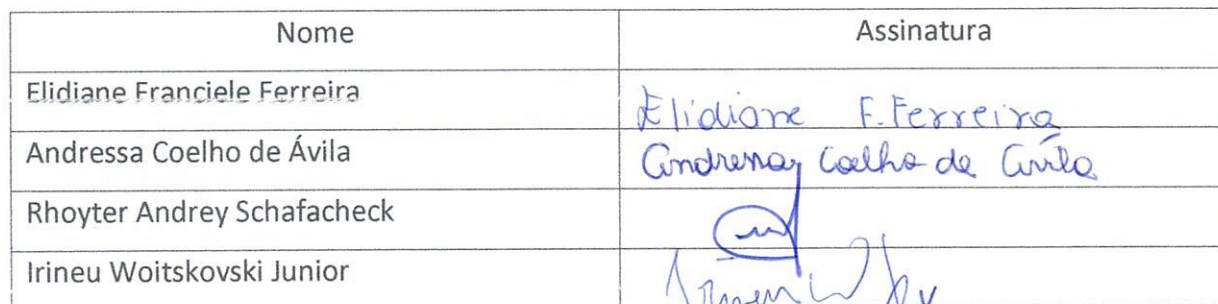 Nome Assinatura
Elidiane Franciele Ferreira Elidiane F. Ferreira
Andressa Coelho de Ávila Andressa Coelho de Avila
Rhoyter Andrey Schafacheck
Irineu Woitskovski Junior